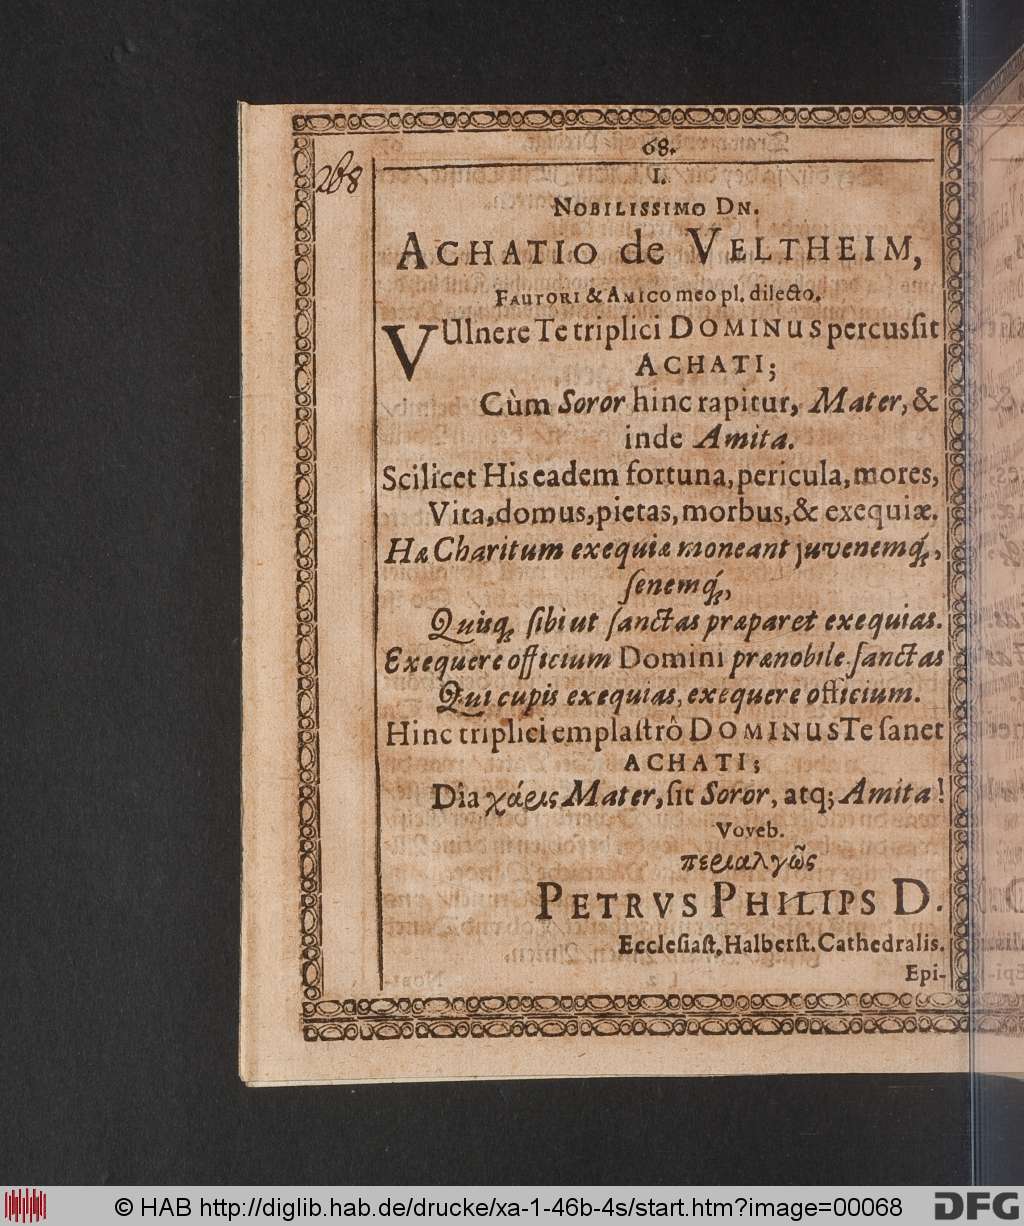 68.
268
I.
NOBILISSIMO DN.
ACHATIO de VELTHEIM,
FAUTORI & AMICO meo pl. dilecto.
VUlnere Te triplici DOMINUS percussit
ACHATI;
Cùm Soror hinc rapitur, Mater, &
inde Amita.
Scilicet His eadem fortuna, pericula, mores,
Vita, domus, pietas, morbus, & exequiæ.
Hæ Charitum exequiæ moneant juvenemq́;,
senemq́;,
Quisq; sibi ut sanctas præparet exequias.
Exequere officium Domini prænobile, sanctas
Qui cupis exequias, exequere officium.
Hinc triplici emplastrô DOMINUS Te sanet
ACHATI;
Dîa χάρις Mater, sit Soror, atq; Amita!
Voveb.
περιαλγῶς
PETRVS PHILIPS D.
Ecclesiast. Halberst. Cathedralis.
Epi-
© HAB http://diglib.hab.de/drucke/xa-1-46b-4s/start.htm?image=00068
DFG